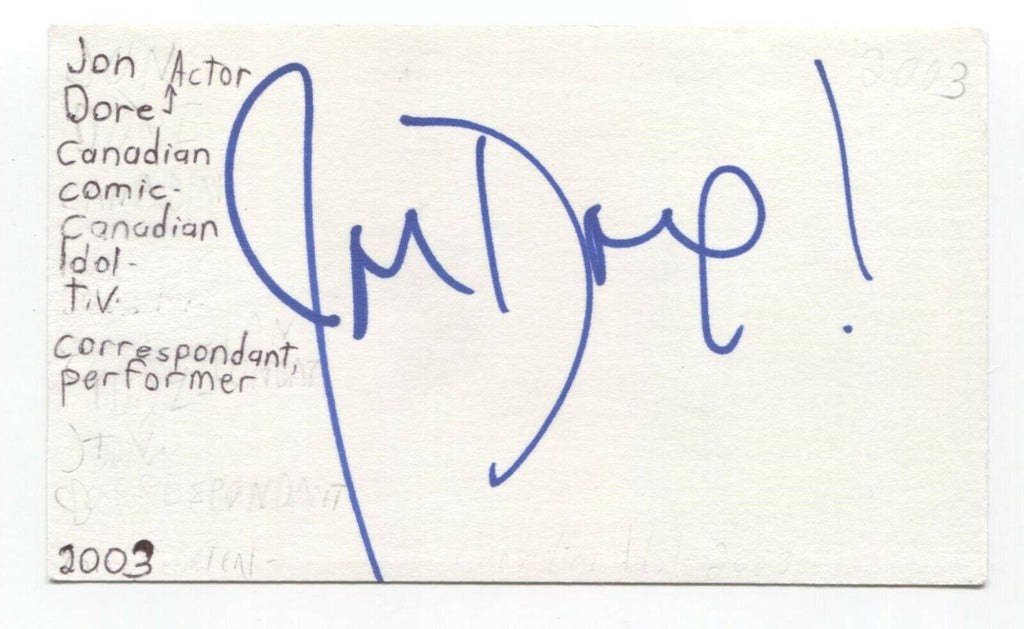 Jon Actor
Dore
Canadian
comic-
Canadian
Idol-
T.V.
correspondant,
performer
2003
Jon Dore!
2003